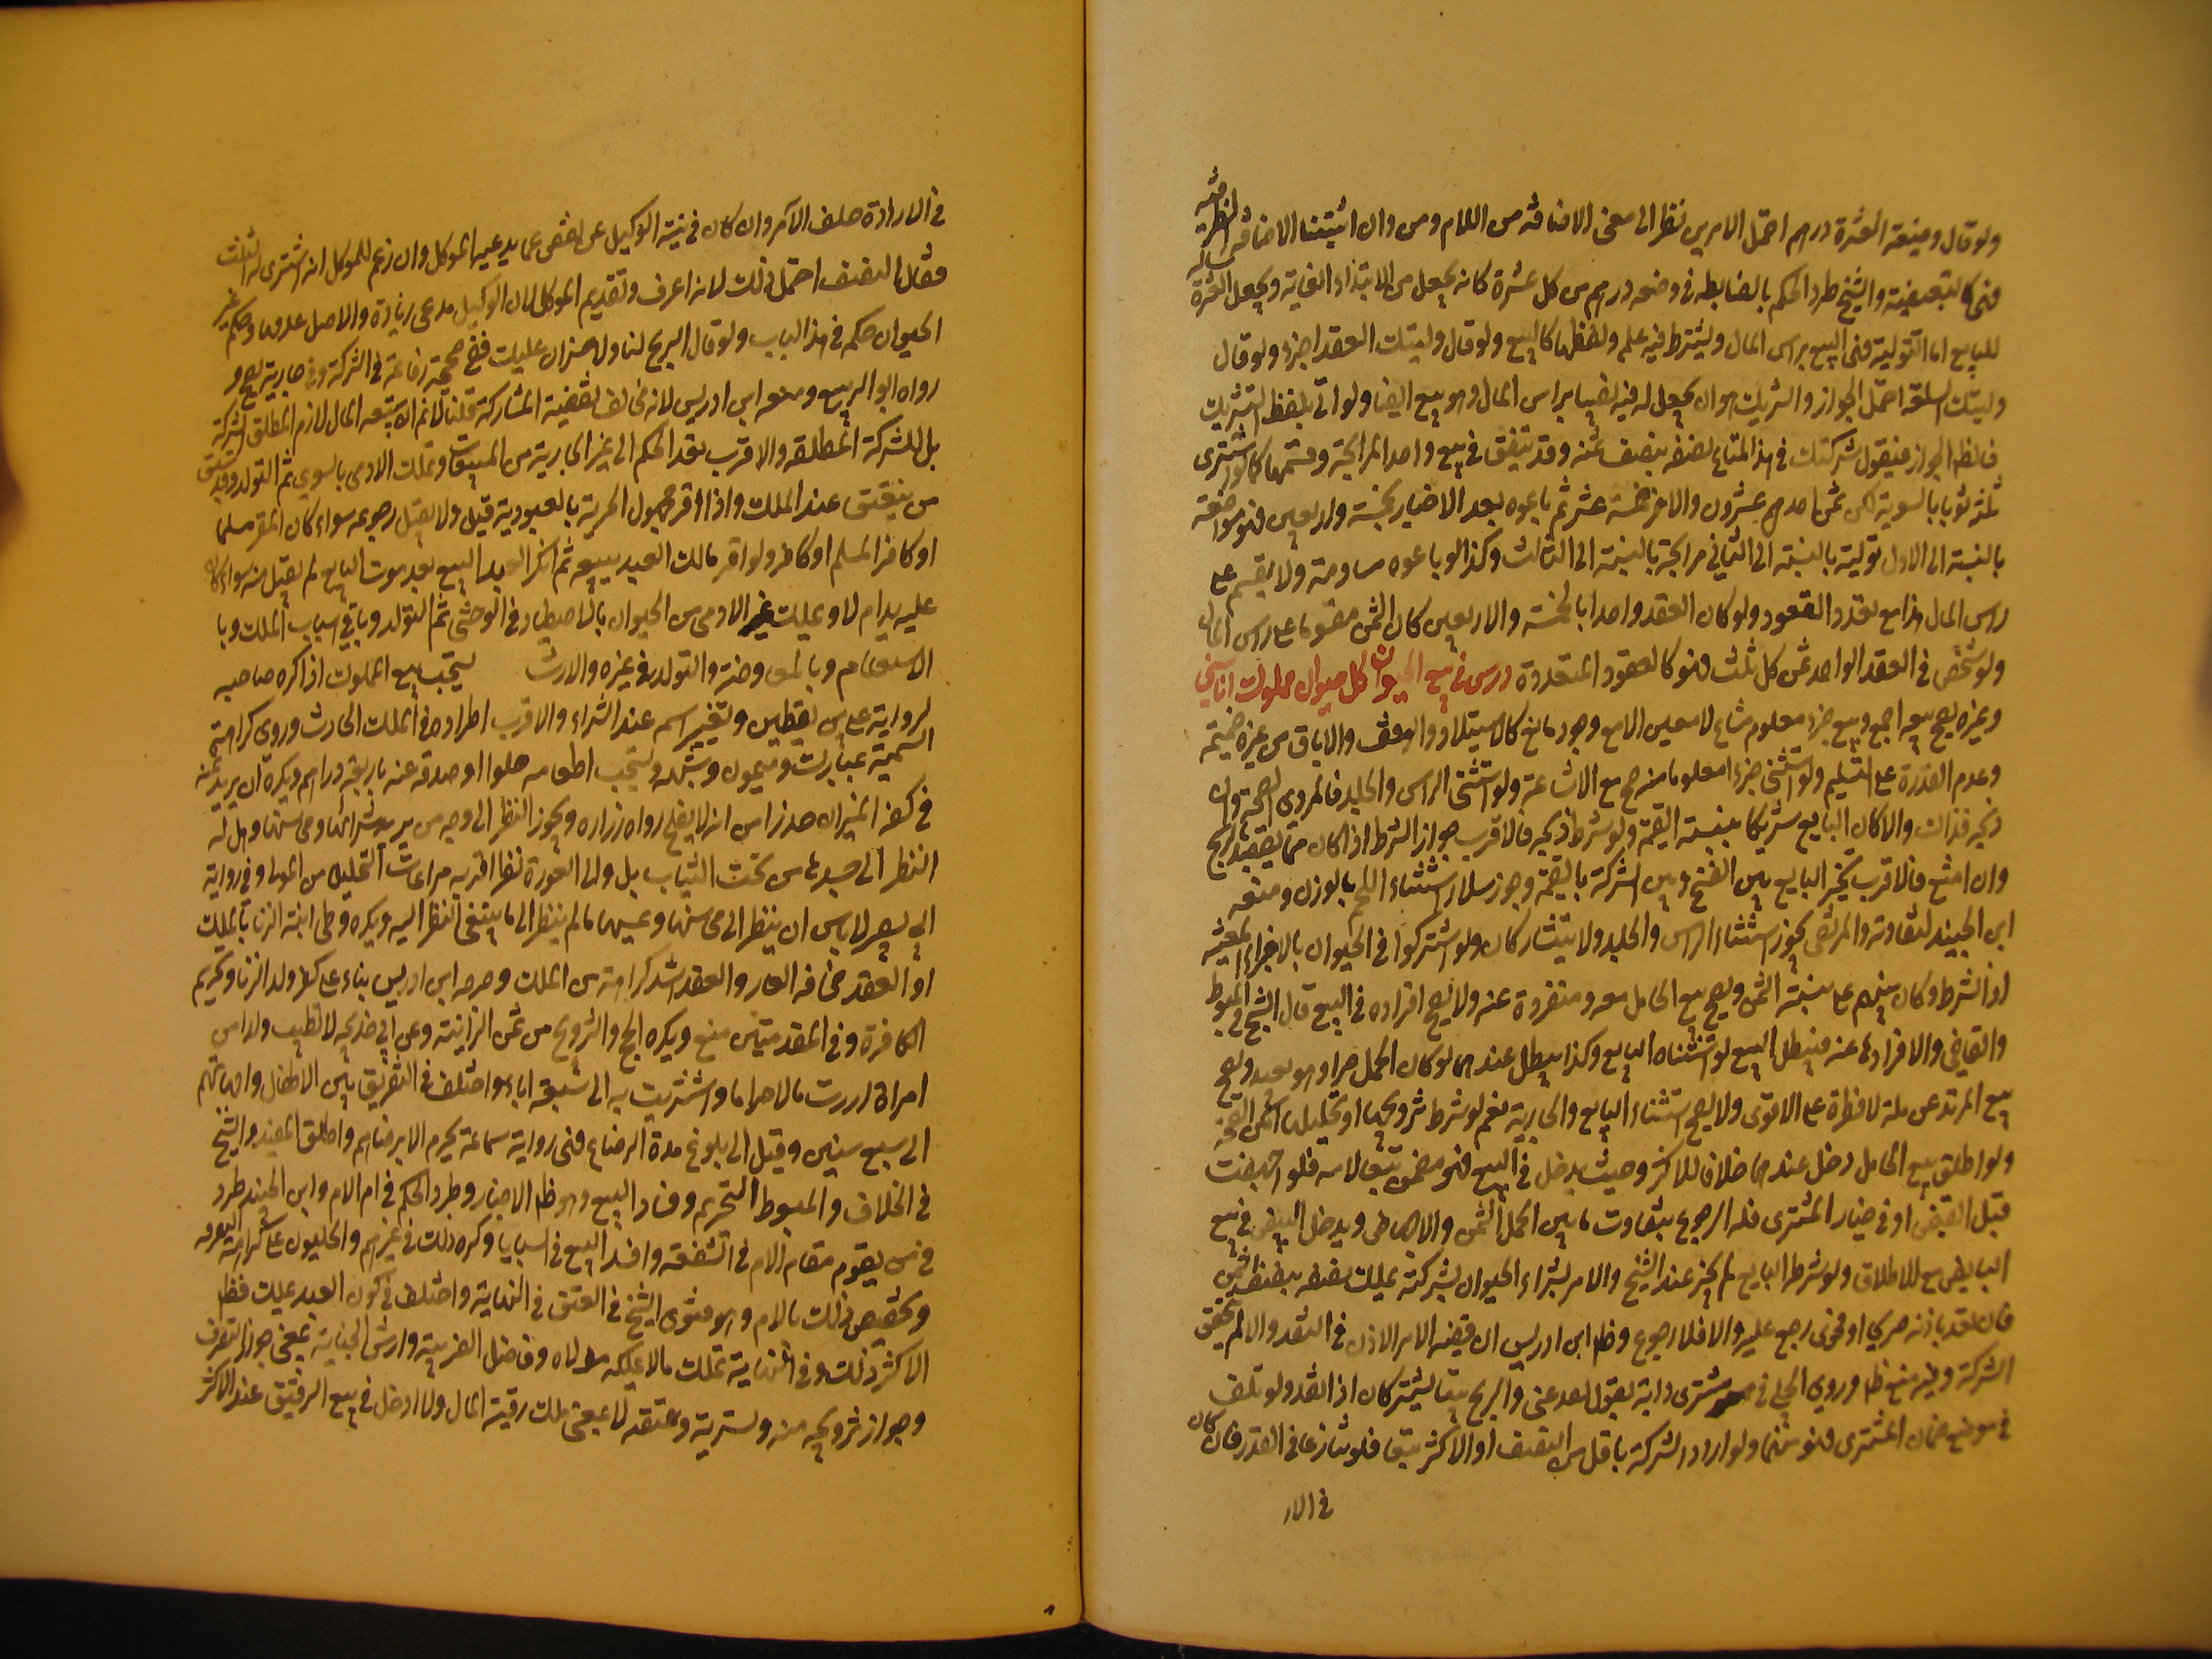 ولو قال وضيعة العشرة درهم احتمل الامرين نظرا الى معنى الاضافة من اللام ومن وان اثبتنا الاضافة الظرفية
فهي كالتبعيضية والشيخ طرد الحكم بالضابطه في وضعه درهم من كل عشرة كانه يجعل من لابتداء الغاية ويجعل العشرة سالمه
للبايع اما التولية فهي البيع براس المال ويشترط فيه علمه ولفظها كالبيع ولو قال وليتك العقد اجزء ولو قال
وليتك السلعة احتمل الجواز والتشريك هو ان يجعل له فيه نصيبا براس المال وهو بيع ايضا ولو اتى بلفظ التشريك
فالظ الجواز فيقول شركتك في هذا المتاع نصفه بنصف ثمنه وقد يتفق في بيع واحد المرابحة وقسيماها كما لو اشترى
ثلثة ثوبا بالسوية لكن ثمن احدهم عشرون والاخر خمسة عشر ثم باعوه بعد الاخبار بخمسة واربعين فهو مواضعة
بالنسبة الى الاول تولية بالنسبة الى الثاني مرابحة بالنسبة الى الثالث وكذا لو باعوه مساومة ولا يقسم على
راس المال هذا مع تعدد العقود ولو كان العقد واحدا بالخمسة والاربعين كان الثمن مقسوما على راس المال
ولو شخص في العقد الواحد ثمن كل ثلث فهو كالعقود المتعددة درس في بيع الحيوان كل حيوان مملوك اناسي
وغيره يصح بيعه اجمع وبيع جزء معلوم مشاع لا معين الا مع وجود مانع كالاستيلاد والوقف والاباق من غير ضميمة
وعدم القدرة على التسليم ولو استثنى جزءا معلوما منه صح مع الاشاعة ولو استثنى الراس والجلد فالمروى الصحة وان
ذبحه فذاك والا كان البايع شريكا بنسبة القيمة ولو شرط ذبحه فالاقرب جواز الشرط اذا كان مما يقصد بالذبح
وان امتنع فالاقرب تخير البايع بين الفسخ وبين الشركة بالقيمة وجوز سلار استثناء اللحم بالوزن ومنعه
ابن الجنيد لتفاوته والمرتضى يجوز استثناء الراس والجلد ولا يتشاركان ولو اشتركوا في الحيوان بالاجزاء المعينة
لغا الشرط وكان بينهم على نسبة الثمن ويصح بيع الحامل معه ومنفردة عنه ولا يصح افراده في البيع قال الشيخ في المبسوط
والقاضي ولا افرادها عنه فيبطل البيع لو استثناه البايع وكذا يبطل عندهما لو كان الحمل حرا وهو بعيد ويصح
بيع المرتد عن ملة لا فطرة على الاقوى ولا يصح استثناء البايع والجارية نعم لو شرط تزويجها او تحليلها امكن الصحة
ولو اطلق بيع الحامل دخل عندهما خلافا للاكثر وحيث يدخل في البيع فهو مضمون تبعا لامه فلو اجهضت
قبل القبض او في خيار المشترى فله الرجوع بتفاوت ما بين الحمل الثمن والاجهاض ويدخل البيض في بيع
البايض مع الاطلاق ولو شرط البايع لم يجز عند الشيخ والامر بشراء الحيوان بشركة تمليك نصفه بنصف الثمن
فان نقد باذنه صريحا او فحوى رجع عليه والا فلا رجوع وظ ابن ادريس ان قضية الامر الاذن في النقد والا لم تحقق
الشركة وفيه منع ظ وروى الحلبي في مشترى دابة يقول لبعد عنى والربح بيننا يشتركان اذا نقد ولو تلف
في موضع ضمان المشترى فهو منهما ولو اراد الشركة باقل من النصف او الاكثر بيننا فلو تنازعا في القدر فان كان
في الار
في الارادة حلف الآمر وان كان في نية الوكيل عن نقص عما يدعيه الموكل وان زعم الموكل انه اشترى له الثلث
فقال النصف احتمل ذلك لانه اعرف وتقديم الموكل لان الوكيل مدعى زيادة والاصل عدمها وحكم غير
الحيوان حكمه في هذا الباب ولو قال الربح لنا ولا خسران عليك ففي صحيحة رفاعة في الشركة في جارية يصح و
رواه ابو الربيع ومنعه ابن ادريس لانه مخالف لقضية المشاركة قلنا لا نم ان تبعية المال لازم المطلق الشركة
بل للشركة المطلقه والاقرب تعدى الحكم الى غير الجارية من المبيعات وتملك الادمى بالسبى ثم التولد وقد سبق
من ينعتق عند الملك واذا اقر مجهول الحرية بالعبودية قبل ولا يقبل رجوعه سواء كان المقر مسلما
او كافرا لمسلم او كافر ولو اقر مالك العبد ببيعه ثم انكر العبد البيع بعد موت البايع لم يقبل منه سواء كان
عليه يدام لا ويملك غير الادمى من الحيوان بالاصطياد في الوحشى ثم التولد وباقي اسباب الملك وبا
الاستغنام وبالمعاوضة والتولد في غيره والارث يستحب بيع المملوك اذا كره صاحبه
لرواية على بن يقطين وتغيير اسمه عند الشراء والاقرب اطراده في الملك الحادث وروى كراهة
التسمية بمبارك وميمون وشبهه ويستحب اطعامه حلوا او صدقة عنه باربعة دراهم ويكره ان يريه ثمنه
في كفة الميزان حذرا من انه لا يفلح رواه زراره ويجوز النظر الى وجه من يريد شرائها ومحاسنها وهل له
النظر الى جسدها من تحت الثياب بل والى العورة نظر اقربه مراعات التحليل من المولى وفي رواية
ابي بصير لا باس ان ينظر الى محاسنها ويمسها ما لم ينظر الى ما ينبغى النظر اليه ويكره وطى ابنة الزنا بالملك
او العقد مخافة العار والعقد اشد كراهة من الملك وحرمه ابن ادريس بناء على كفر ولد الزنا وتحريم
الكافرة وفي المقدمتين منع ويكره الحج والتزويج من ثمن الزانية وعن ابي خديجه لا تطيب ولد من
امراة امهرت مالا حراما واشتريت به الى سبعة اباء واختلف في التفريق بين الاطفال وامهاتهم
الى سبع سنين وقيل الى بلوغ مدة الرضاع ففي رواية سماعة يحرم الا برضاهم واطلق المفيد والشيخ
في الخلاف والمبسوط التحريم وفساد البيع وهو ظ الاخبار وطرد الحكم في ام الام وابن الجنيد طرد
في من يقوم مقام الام في الشفقة وافسد البيع في السبايا وكره ذلك في غيرهم والحليون على كراهة التفرقه
وتخصيص ذلك بالام وهو فتوى الشيخ في العتق في النهاية واختلف في كون العبد يملك فظ
الاكثر ذلك وفي النهاية تملك ما لا يملكه مولاه وفاضل الضريبة وارش الجناية بمعنى جواز التصرف
وجواز تزويجه منه وتسرية وعتقه لا بمعنى ملك رقبة المال ولا ادخل في بيع الرقيق عند الاكثر